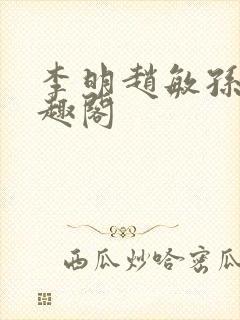 李明趙敏孫
趣閣
西瓜炒哈密瓜